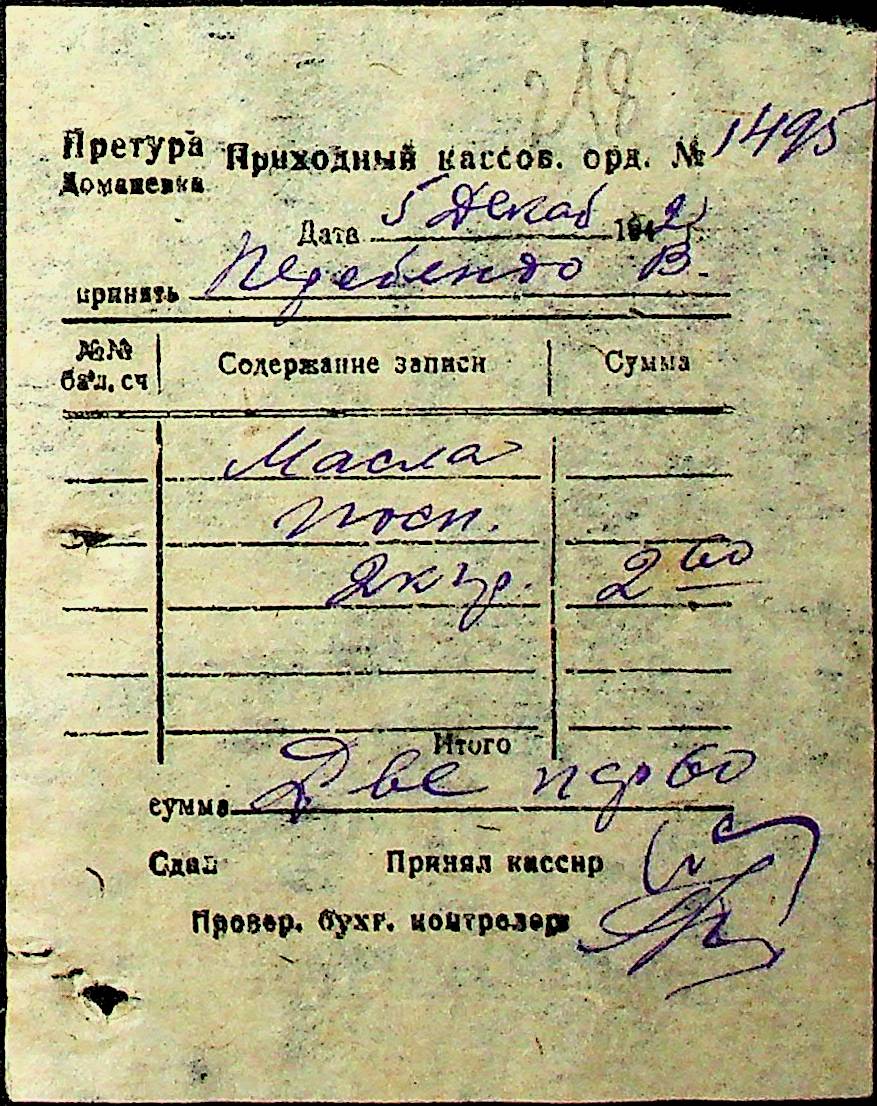 218
Претура Приходный кассов. орд. № 1495
Доманевка
Дата 5 Декаб 1942
принять В.
№№ бал. сч Содержание записи Сумма
Масла
посп.
2 кгр. 2 60
Итого
сумма Две 60
Сдал Принял кассир
Провер. бухг. контролер